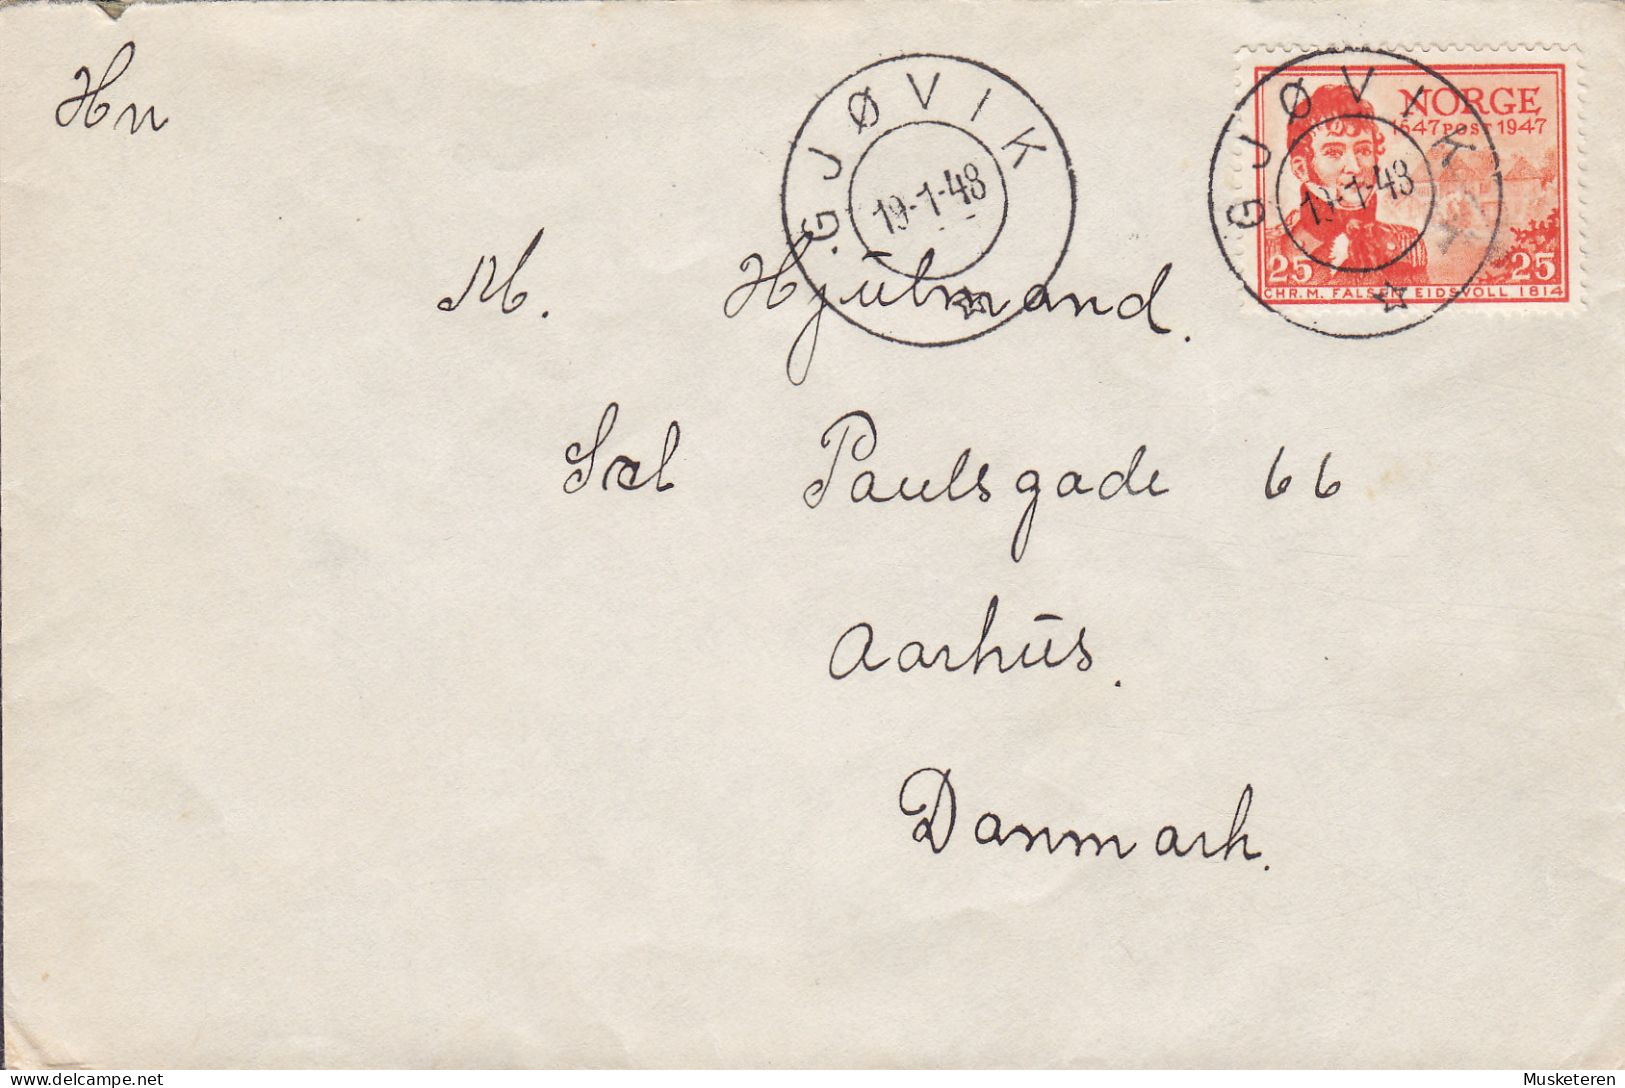 Hn
GJØVIK
19-1-48
GJØVIK
19-1-48
NORGE
1647 POST 1947
25 25
CHR. M. FALSEN EIDSVOLL 1814
M. Hjulmand.
Sct Paulsgade 66
Aarhus.
Danmark.
Musketeren